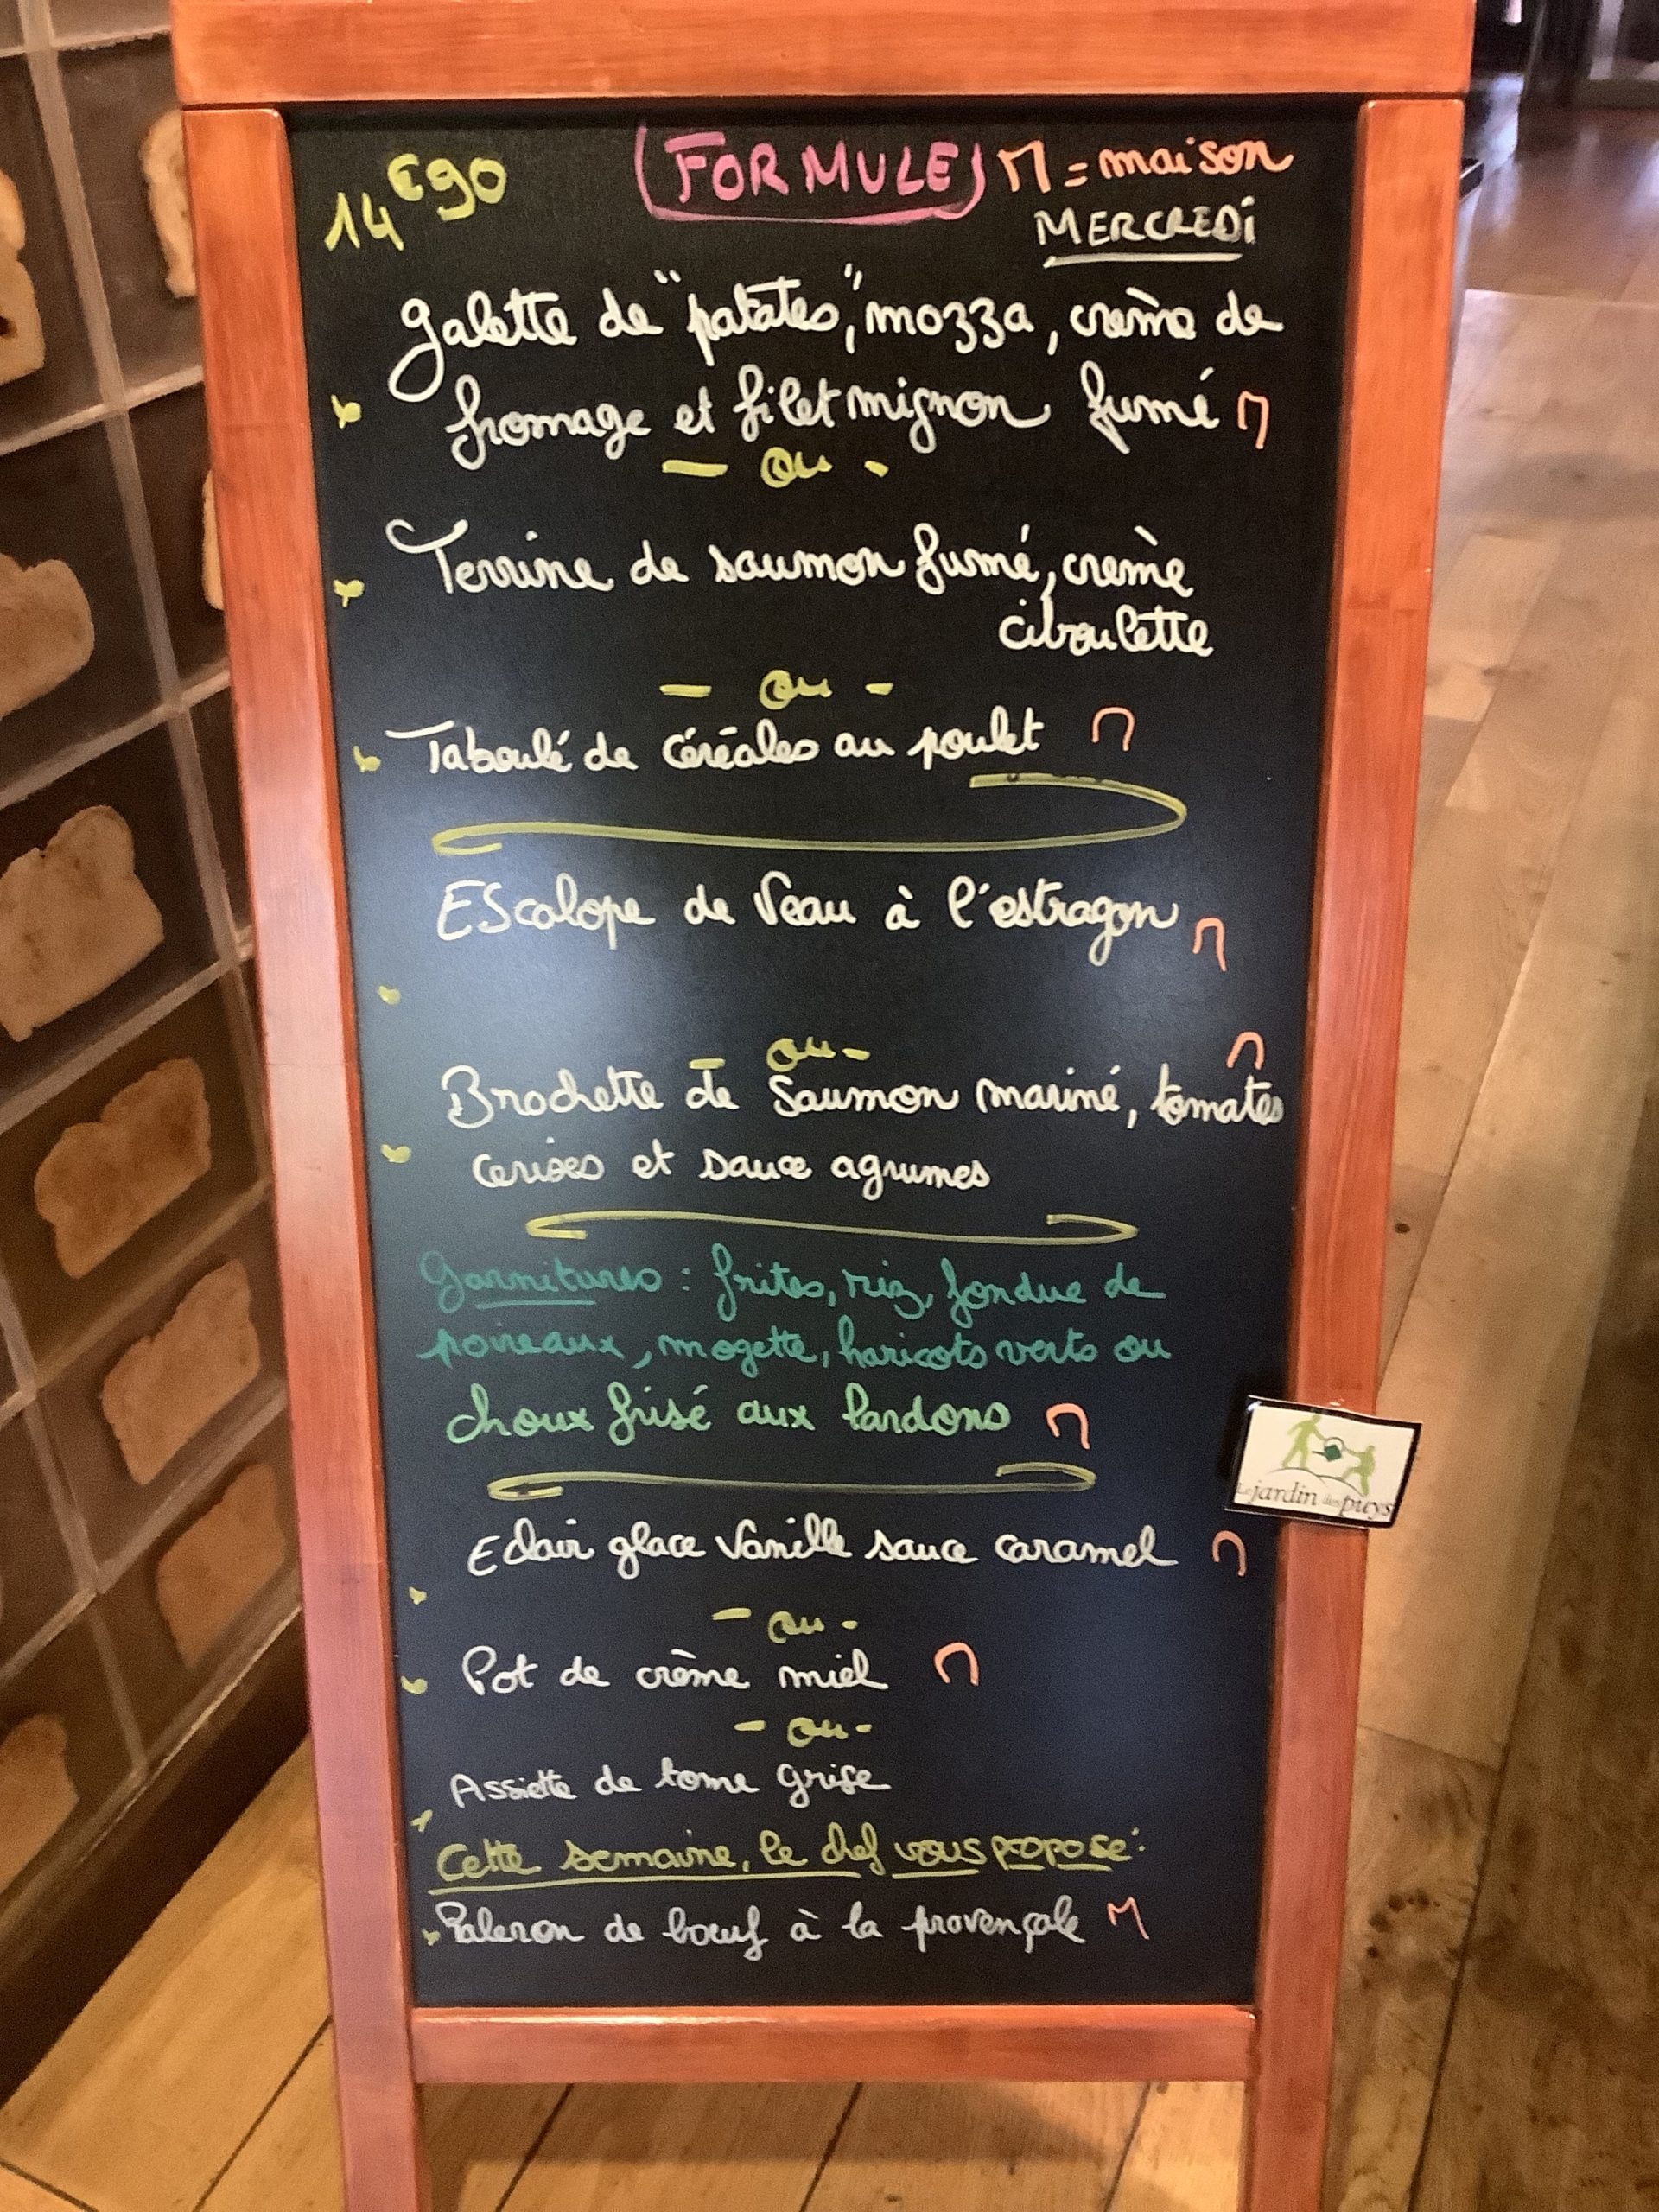 14€90 FORMULE M = maison
MERCREDI
Galette de "patates", mozza, crème de
fromage et filet mignon fumé M
- ou -
Terrine de saumon fumé, crème
ciboulette
- ou -
Taboulé de céréales au poulet M
Escalope de Veau à l'estragon M
- ou - M
Brochette de Saumon mariné, tomates
cerises et sauce agrumes
Garnitures : frites, riz, fondue de
poireaux, mogette, haricots verts ou
choux frisé aux lardons M
Le jardin des puys
Eclair glace Vanille sauce caramel M
- ou -
Pot de crème miel M
- ou -
Assiette de tome grise
Cette semaine, le chef vous propose :
Paleron de bœuf à la provençale M